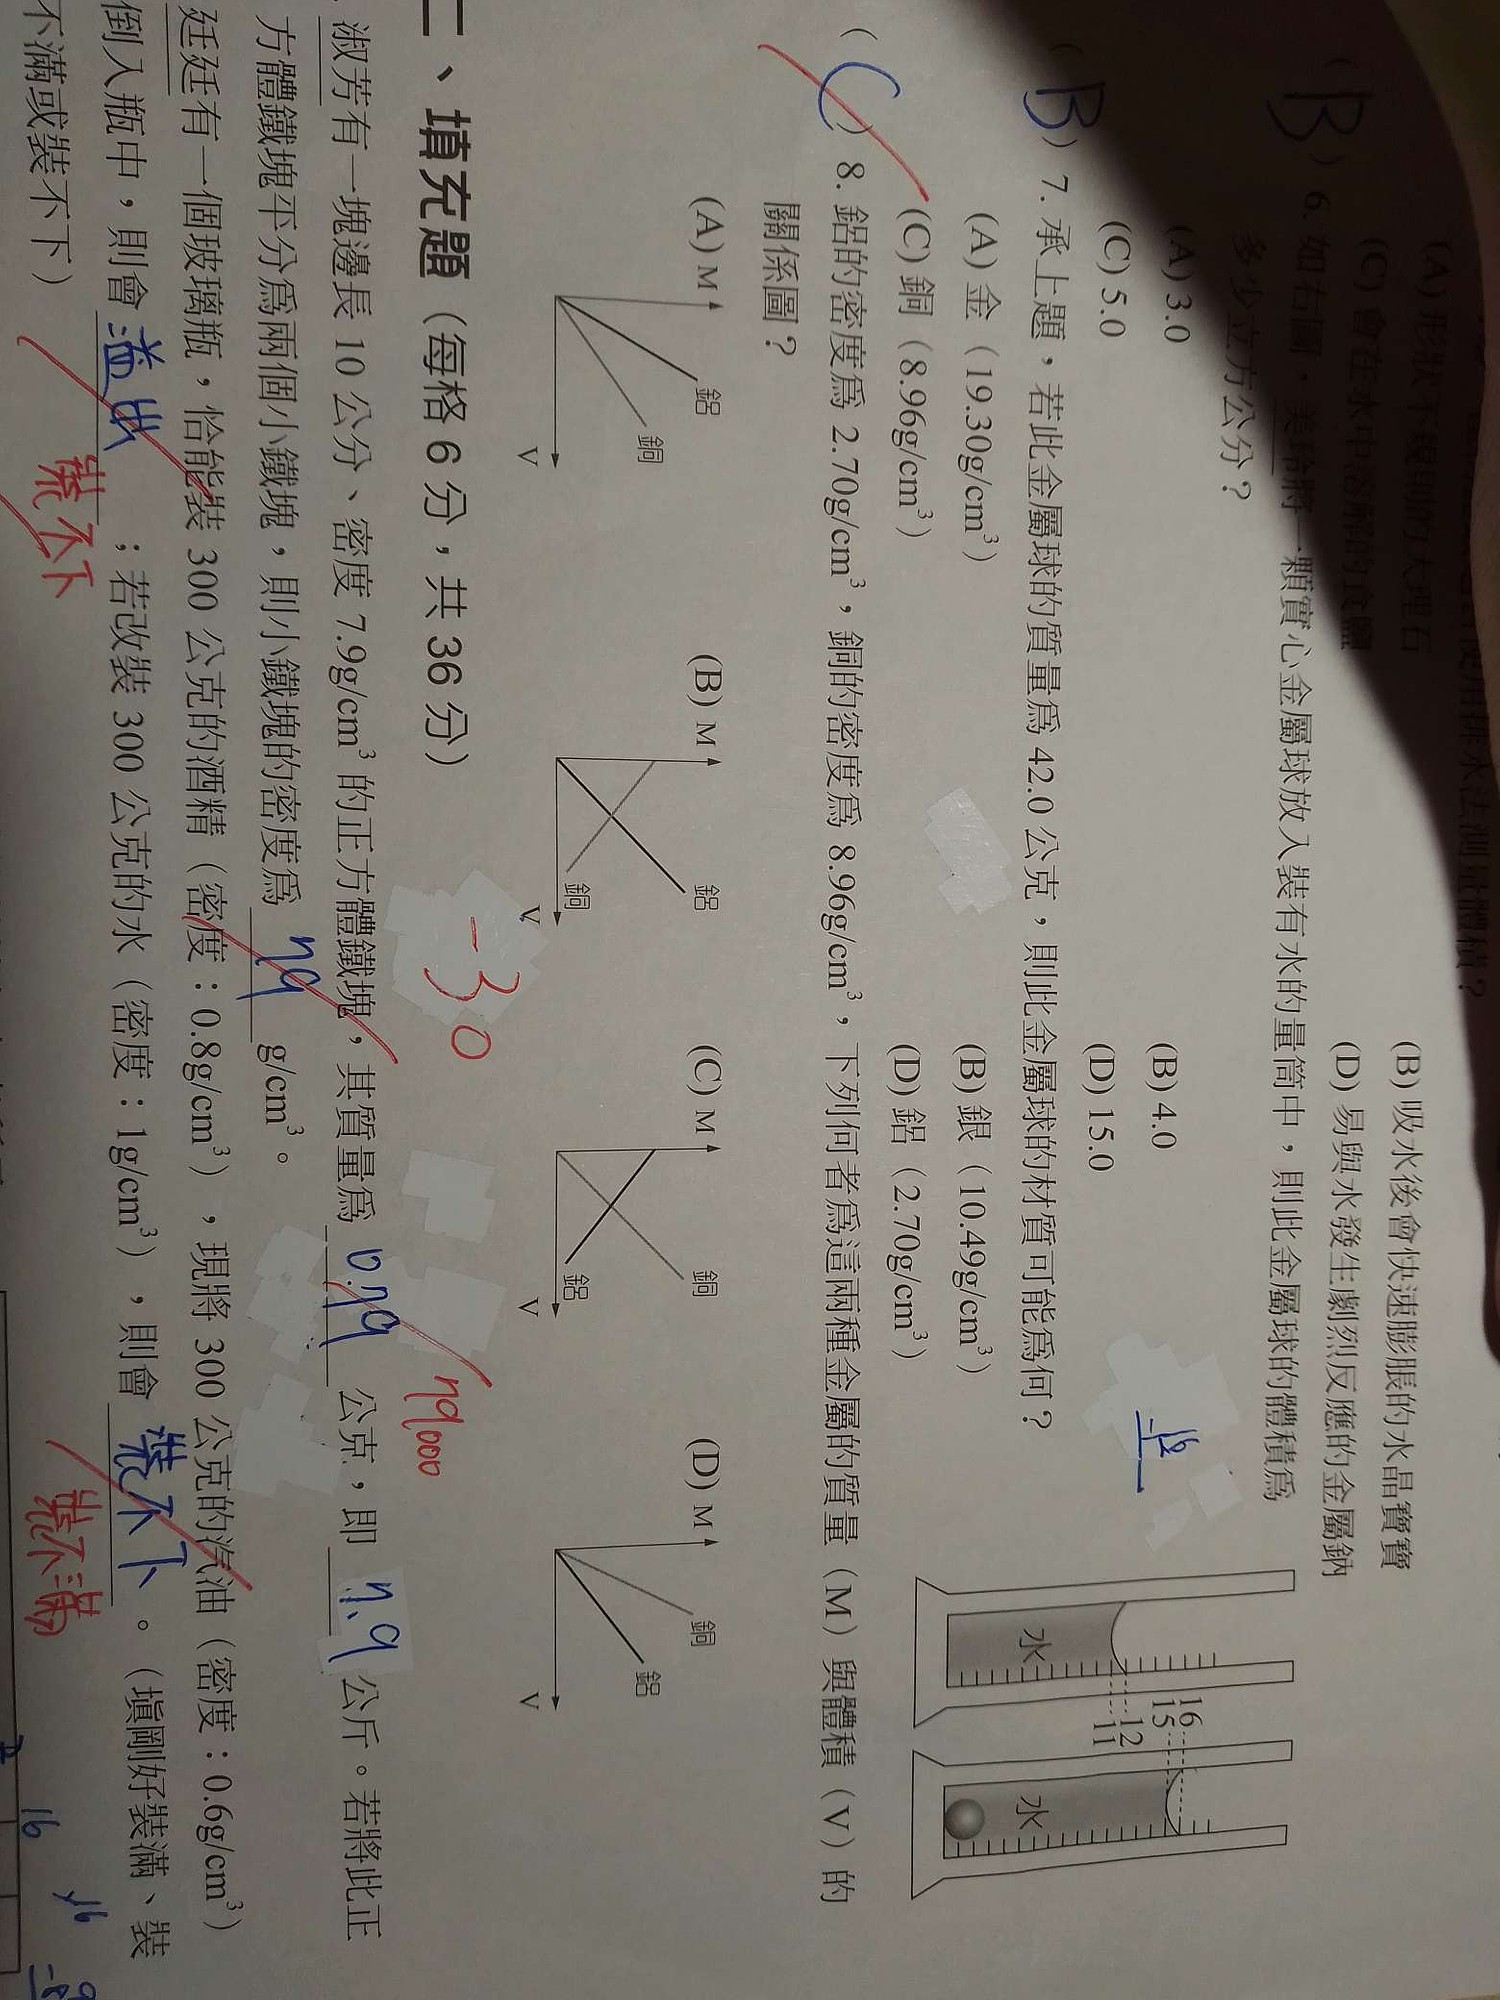 (A) 形狀不規則的大理石
(B) 吸水後會快速膨脹的水晶寶寶
(C) 會在水中溶解的食鹽
(D) 易與水發生劇烈反應的金屬鈉
( B ) 6. 如右圖，美玲將一顆實心金屬球放入裝有水的量筒中，則此金屬球的體積為
多少立方公分？
(A) 3.0
(B) 4.0
(C) 5.0
(D) 15.0
水
16
15
12
11
水
( B ) 7. 承上題，若此金屬球的質量為 42.0 公克，則此金屬球的材質可能為何？
(A) 金（19.30g/cm³）
(B) 銀（10.49g/cm³）
(C) 銅（8.96g/cm³）
(D) 鋁（2.70g/cm³）
( C ) 8. 鋁的密度為 2.70g/cm³，銅的密度為 8.96g/cm³，下列何者為這兩種金屬的質量（M）與體積（V）的
關係圖？
(A) M 鋁 銅 V
(B) M 鋁 銅 V
(C) M 銅 鋁 V
(D) M 銅 鋁 V
二、填充題（每格 6 分，共 36 分）
-30
淑芳有一塊邊長 10 公分、密度 7.9g/cm³ 的正方體鐵塊，其質量為 0.79 公克，即 7.9 公斤。若將此正
7900
方體鐵塊平分為兩個小鐵塊，則小鐵塊的密度為 79 g/cm³。
廷廷有一個玻璃瓶，恰能裝 300 公克的酒精（密度：0.8g/cm³），現將 300 公克的汽油（密度：0.6g/cm³）
倒入瓶中，則會 溢出 ；若改裝 300 公克的水（密度：1g/cm³），則會 裝不下 。（填剛好裝滿、裝
裝不下
裝不滿
不滿或裝不下）
16